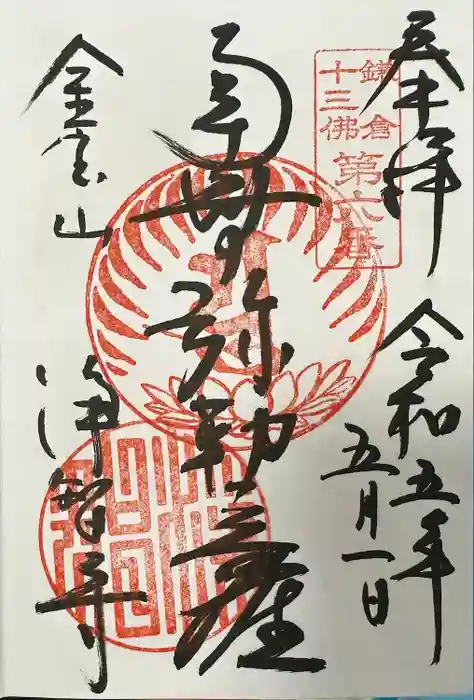 奉拝
鎌倉
十三佛
第六番
令和五年
五月一日
南無弥勒菩薩
金宝山
浄智寺